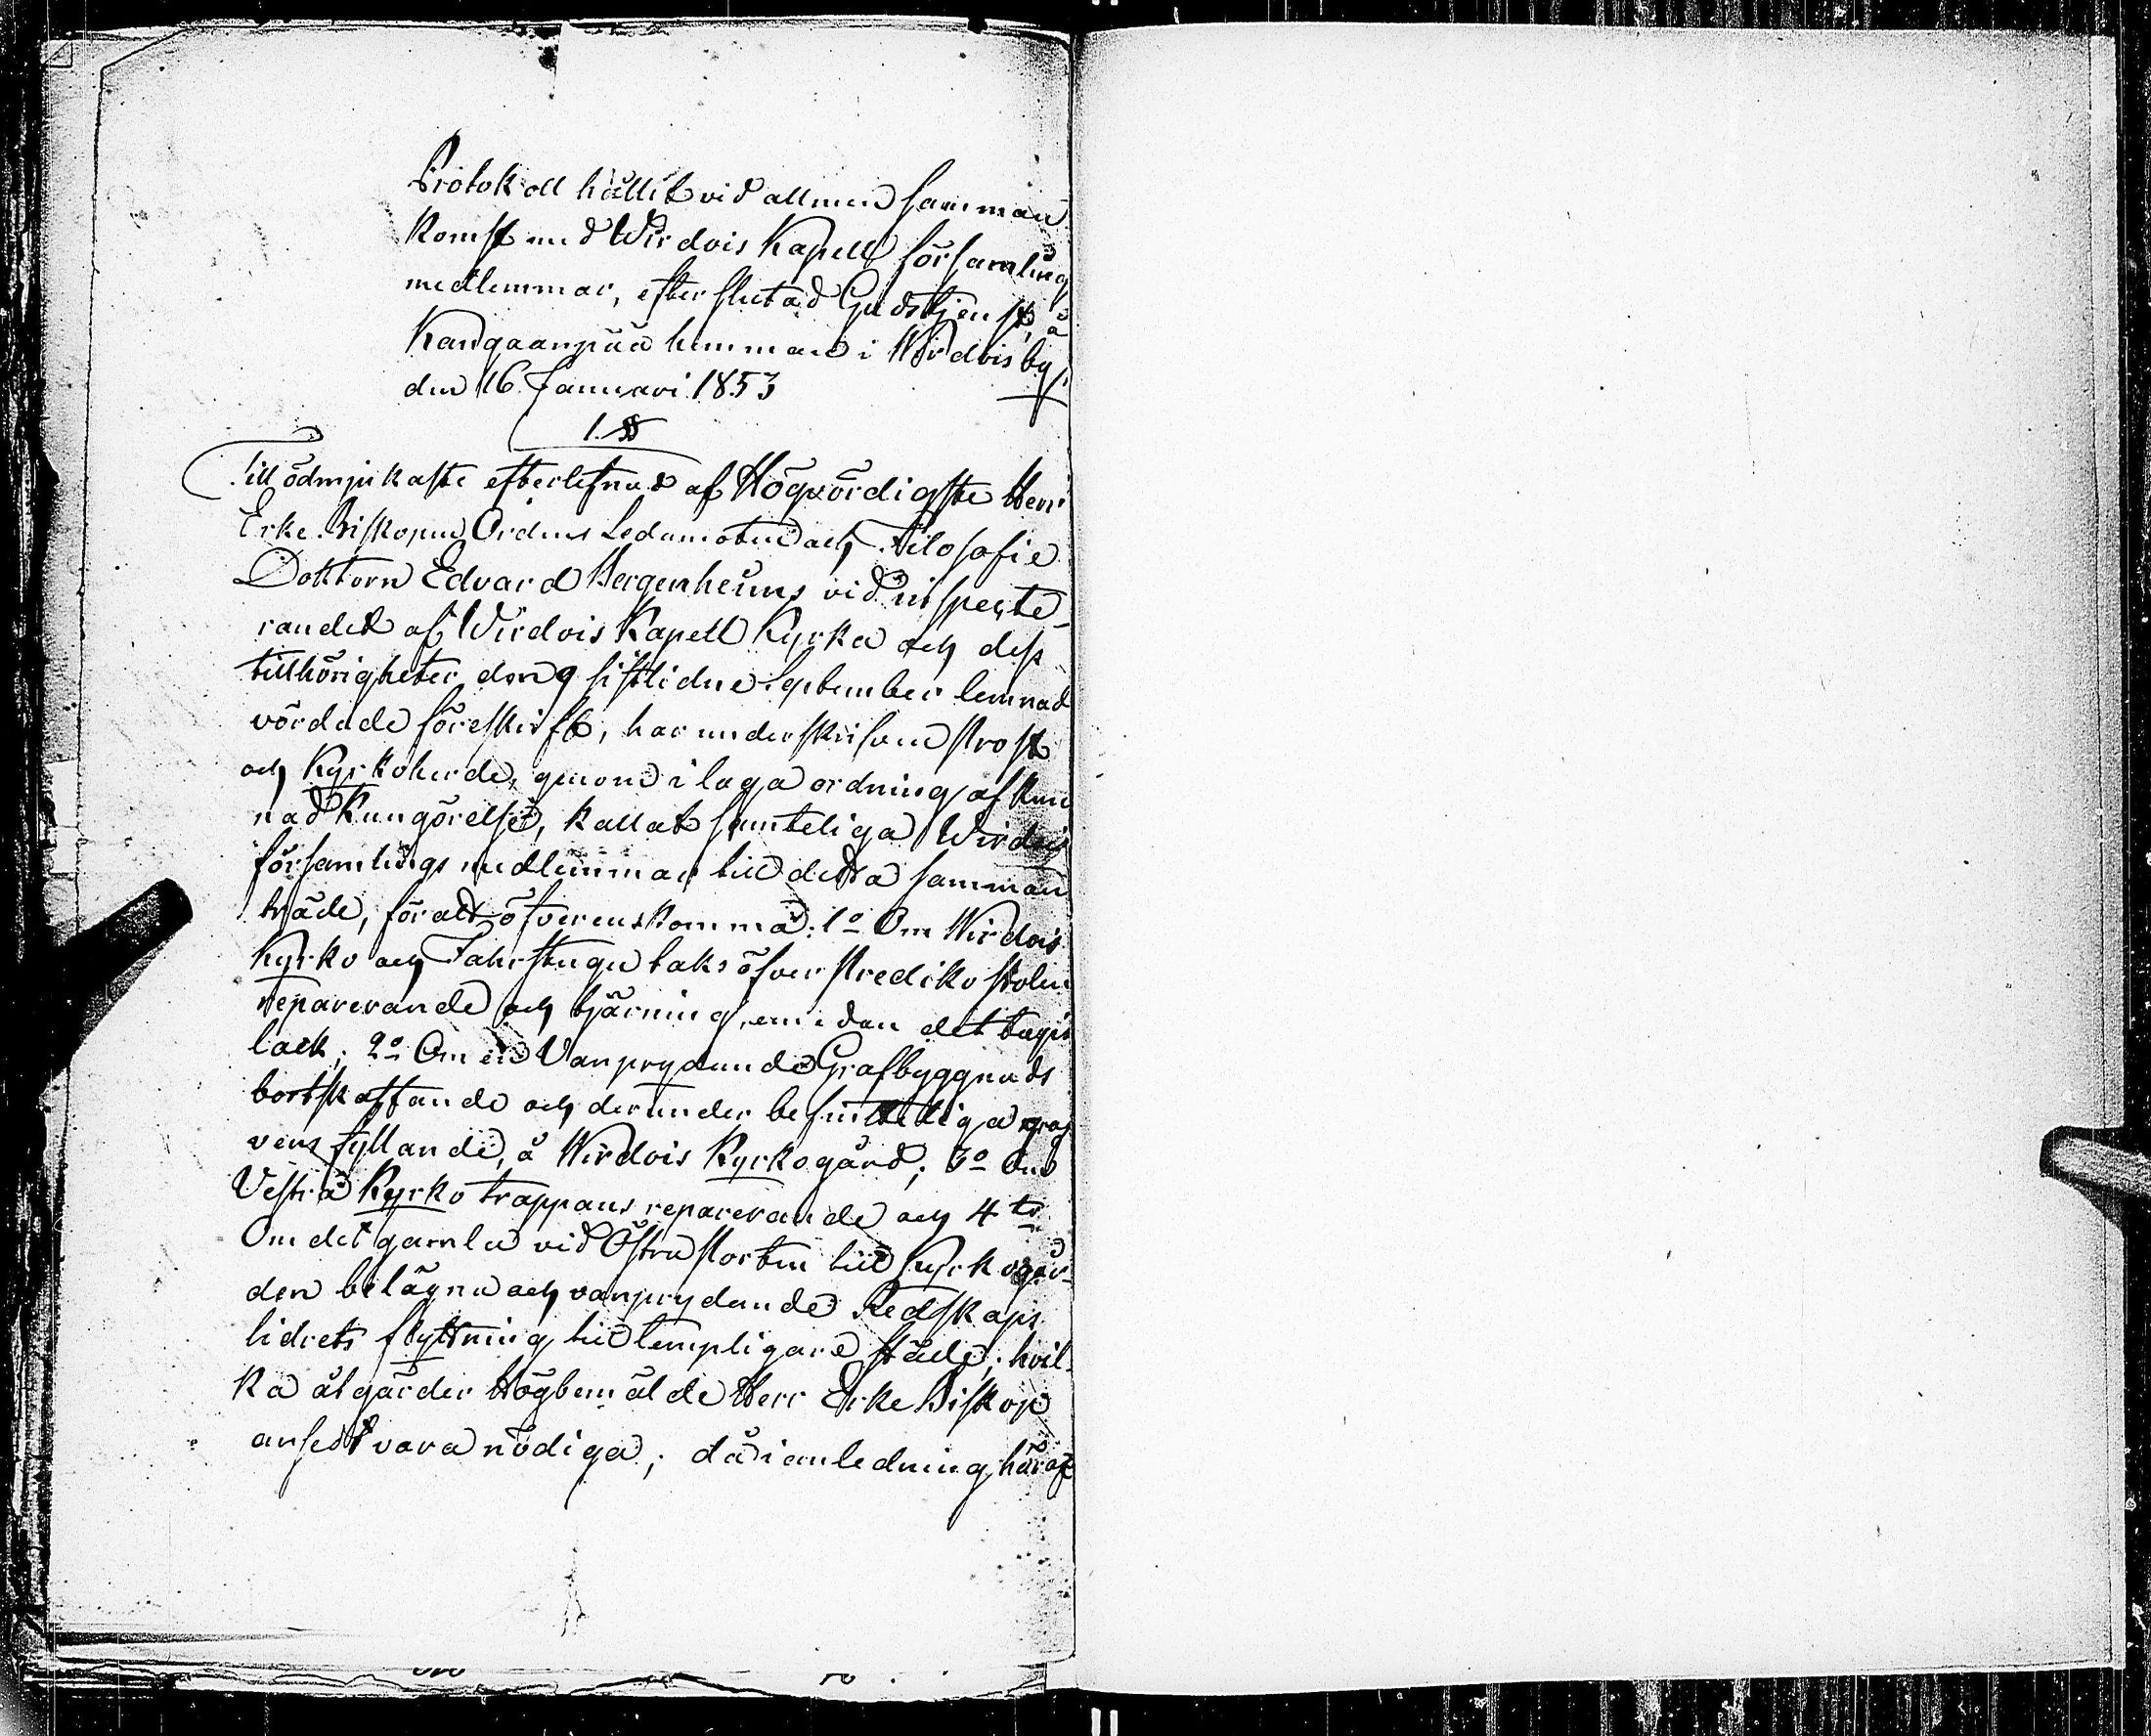 Protokoll hållit vid allmen samman
komst med Wirdois Kapell församling
medlemmar, efter slutad Gudstjenst, å
Kangaanpää hemman i Wirdois by,
den 16 Januari 1853
1. §
Till ödmjukaste efterlefnad af Högvördigste Herr
Erke-Biskopen, Ordens Ledamoten och Filosofie
Doktorn Edvard Bergenheims vid inspecte-
randet af Wirdois Kapell Kyrka och dess
tillhörigheter den 9 sistlidne September lemnad
vördade föreskrift, har underskrifven Prost
och Kyrkoherde, genom i laga ordning afkun
nad Kungörelse, kallat samteliga Wirdois
församlings medlemmar till detta samman
träde, för att öfverenskomma: 1o Om Wirdois
Kyrko och taks öfver Predikostolen
reparerande och tjärning, emedan det tagit
läck; 2o Om en Vanprydande Grafbyggnads
bortskaffande och derunder befinteliga graf
vens fyllande, å Wirdois Kyrkogård; 3o Om
Vestra Kyrko trappans reparerande och 4to
Om det gamla vid Östra Porten till Kyrkogår-
den belägna och vanprydande Redskaps
lidrets flyttning till lempligare ställe; hvil-
ka åtgärder Högbemälde Herr Erke Biskop
ansedt vara nödiga; då i anledning häraf